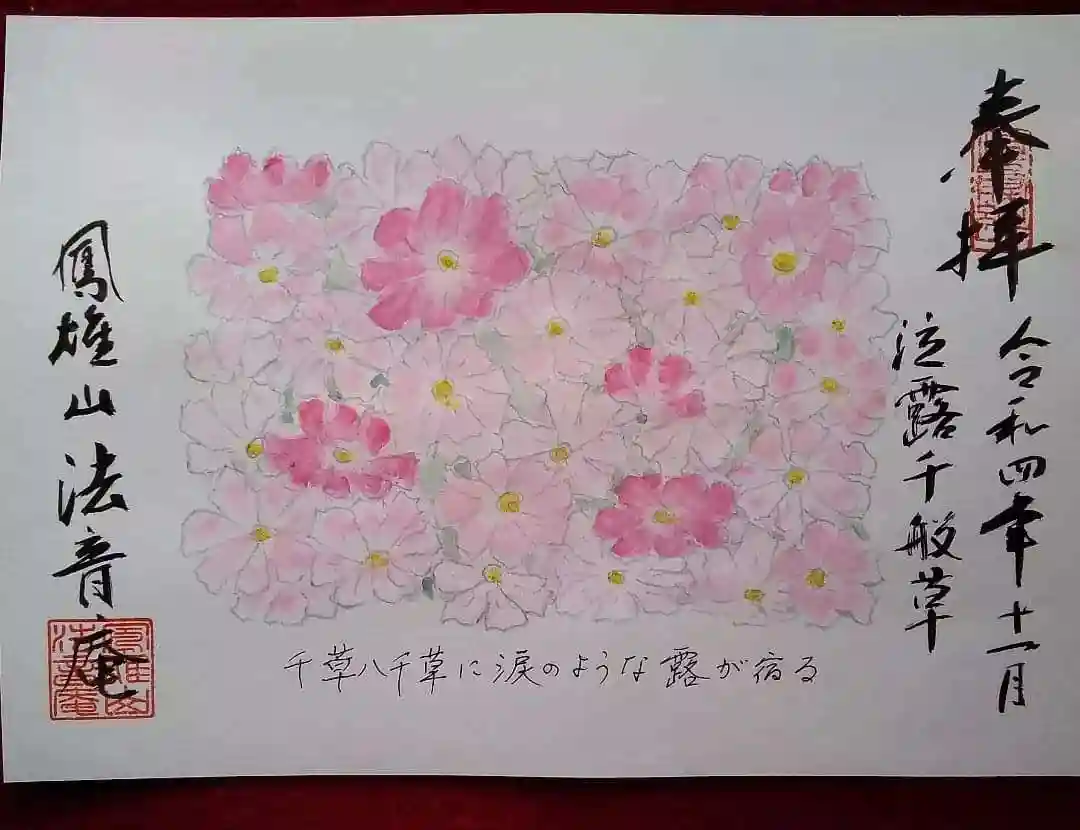 奉拝
令和四年十一月
泣露千般草
千草八千草に涙のような露が宿る
鳳雄山法音庵